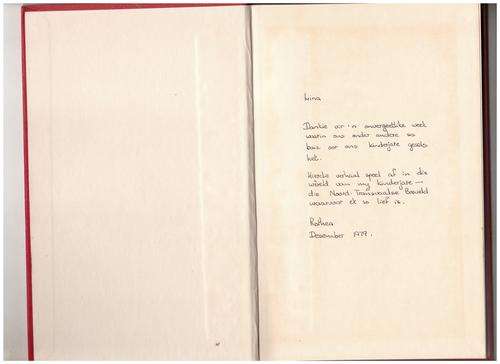 Irina
Dankie vir 'n onvergeetlike week
waarin ons onder andere so
baie oor ons kinderjare gesels
het.
Hierdie verhaal speel af in die
wêreld van my kinderjare —
die Noord-Transvaalse Bosveld
waarvoor ek so lief is.
Rothea
Desember 1979.